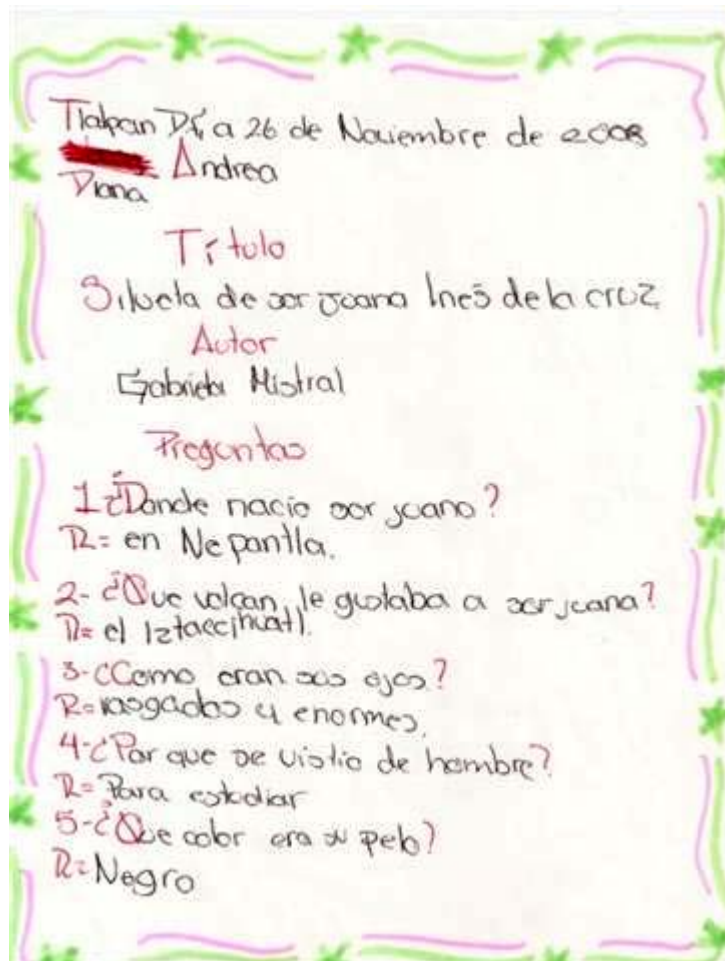 Tlalpan D.F, a 26 de Noviembre de 2008
Andrea
Diana
Título
Silueta de sor juana Inés de la cruz
Autor
Gabriela Mistral
Preguntas
1¿Donde nacio sor juana?
R= en Nepantla.
2- ¿Que volcan le gustaba a sor juana?
R= el Iztaccihuatl.
3-¿Como eran sus ojos?
R= rasgados y enormes.
4-¿Por que se vistio de hombre?
R= Para estudiar
5-¿Que color era su pelo?
R= Negro